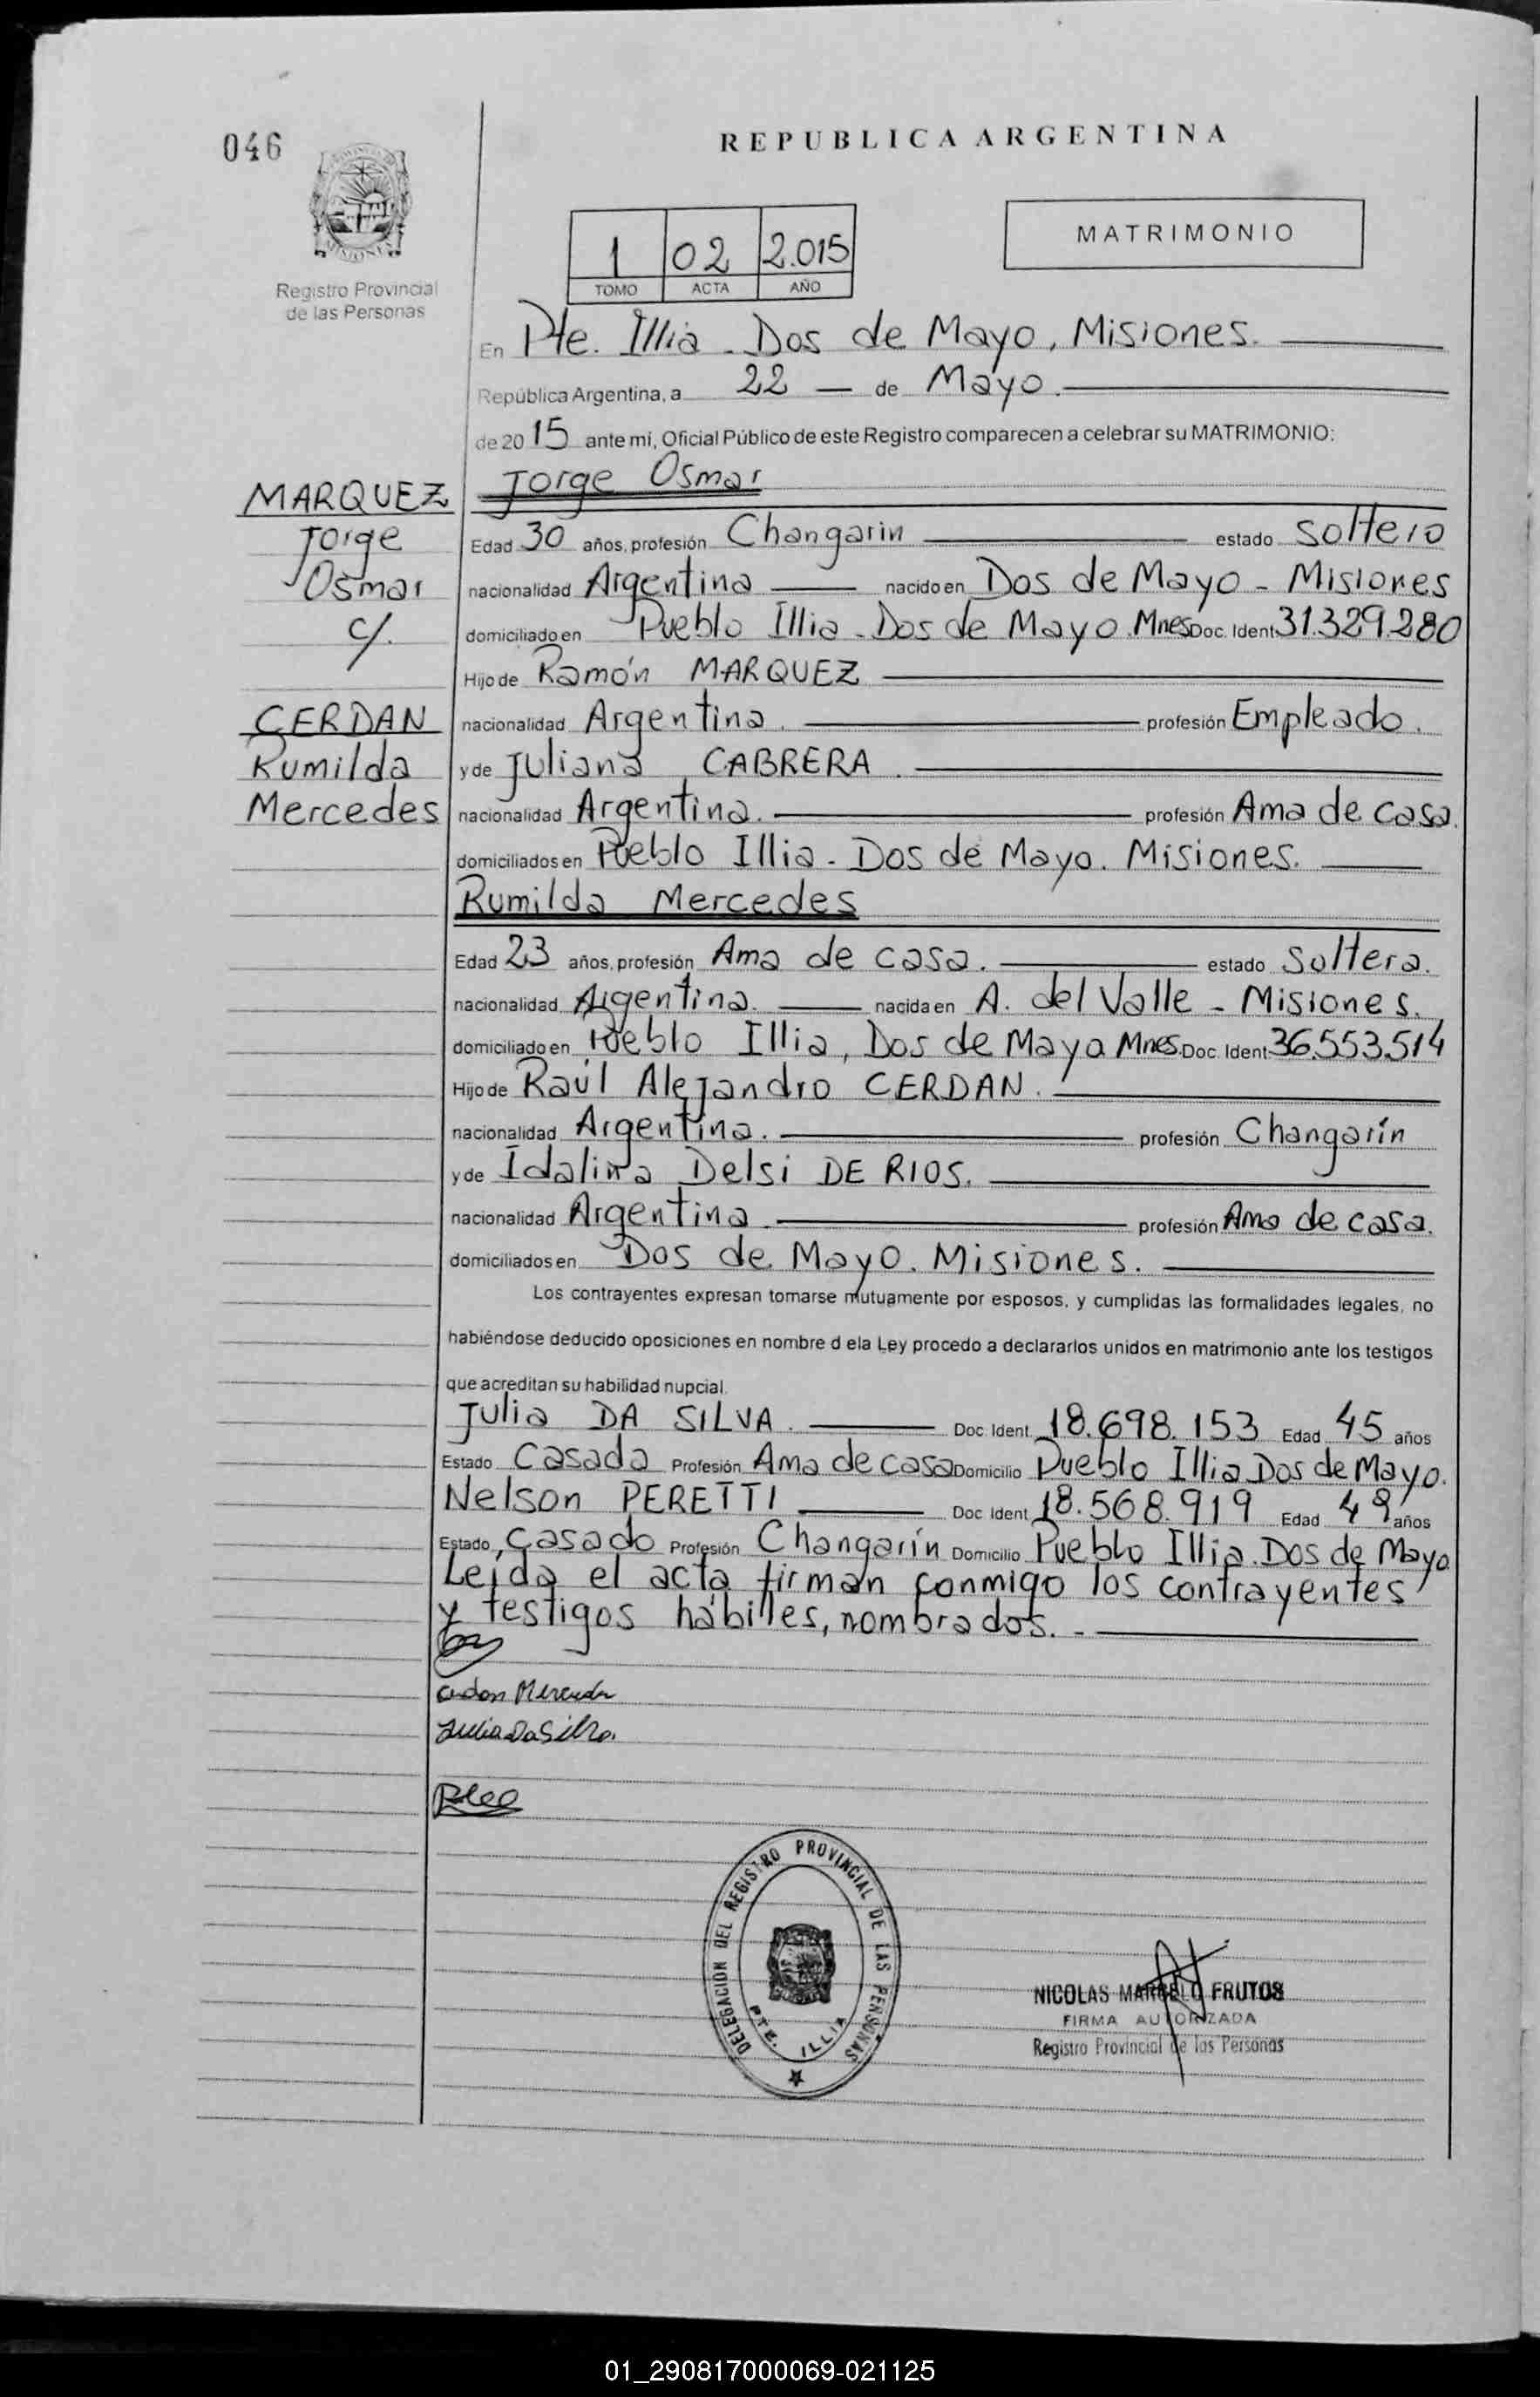 046
REPUBLICA ARGENTINA
MATRIMONIO
1 02 2.015
TOMO ACTA AÑO
Registro Provincial
de las Personas
En Pte. Illia - Dos de Mayo, Misiones.
República Argentina, a 22 — de Mayo.
de 2015 ante mi, Oficial Público de este Registro comparecen a celebrar su MATRIMONIO:
MARQUEZ Jorge Osmar
Jorge
Osmar
c/.
CERDAN
Rumilda
Mercedes
Edad 30 años, profesión Changarin estado soltero
nacionalidad Argentina nacido en Dos de Mayo - Misiones
domiciliado en Pueblo Illia - Dos de Mayo. Mnes Doc. Ident. 31.329.280
Hijo de Ramón MARQUEZ
nacionalidad Argentina. profesión Empleado.
y de Juliana CABRERA.
nacionalidad Argentina. profesión Ama de casa.
domiciliados en Pueblo Illia - Dos de Mayo. Misiones.
Rumilda Mercedes
Edad 23 años, profesión Ama de casa. estado Soltera.
nacionalidad Argentina. nacida en A. del Valle - Misiones.
domiciliado en Pueblo Illia, Dos de Mayo Mnes. Doc. Ident. 36.553.514
Hijo de Raúl Alejandro CERDAN.
nacionalidad Argentina. profesión Changarín
y de Idalina Delsi DE RIOS.
nacionalidad Argentina profesión Ama de casa.
domiciliados en Dos de Mayo. Misiones.
Los contrayentes expresan tomarse mutuamente por esposos, y cumplidas las formalidades legales, no
habiéndose deducido oposiciones en nombre d ela Ley procedo a declararlos unidos en matrimonio ante los testigos
que acreditan su habilidad nupcial.
Julia DA SILVA. Doc. Ident. 18.698.153 Edad 45 años
Estado Casada Profesión Ama de casa Domicilio Pueblo Illia Dos de Mayo.
Nelson PERETTI Doc Ident. 18.568.919 Edad 49 años
Estado Casado Profesión Changarín Domicilio Pueblo Illia. Dos de Mayo
Leída el acta firman conmigo los contrayentes
y testigos hábilles, nombrados. -
Julia Da Silva.
DELEGACION DEL REGISTRO PROVINCIAL DE LAS PERSONAS
PTE. ILLIA
NICOLAS MARCELO FRUTOS
FIRMA AUTORIZADA
Registro Provincial de las Personas
01_290817000069-021125